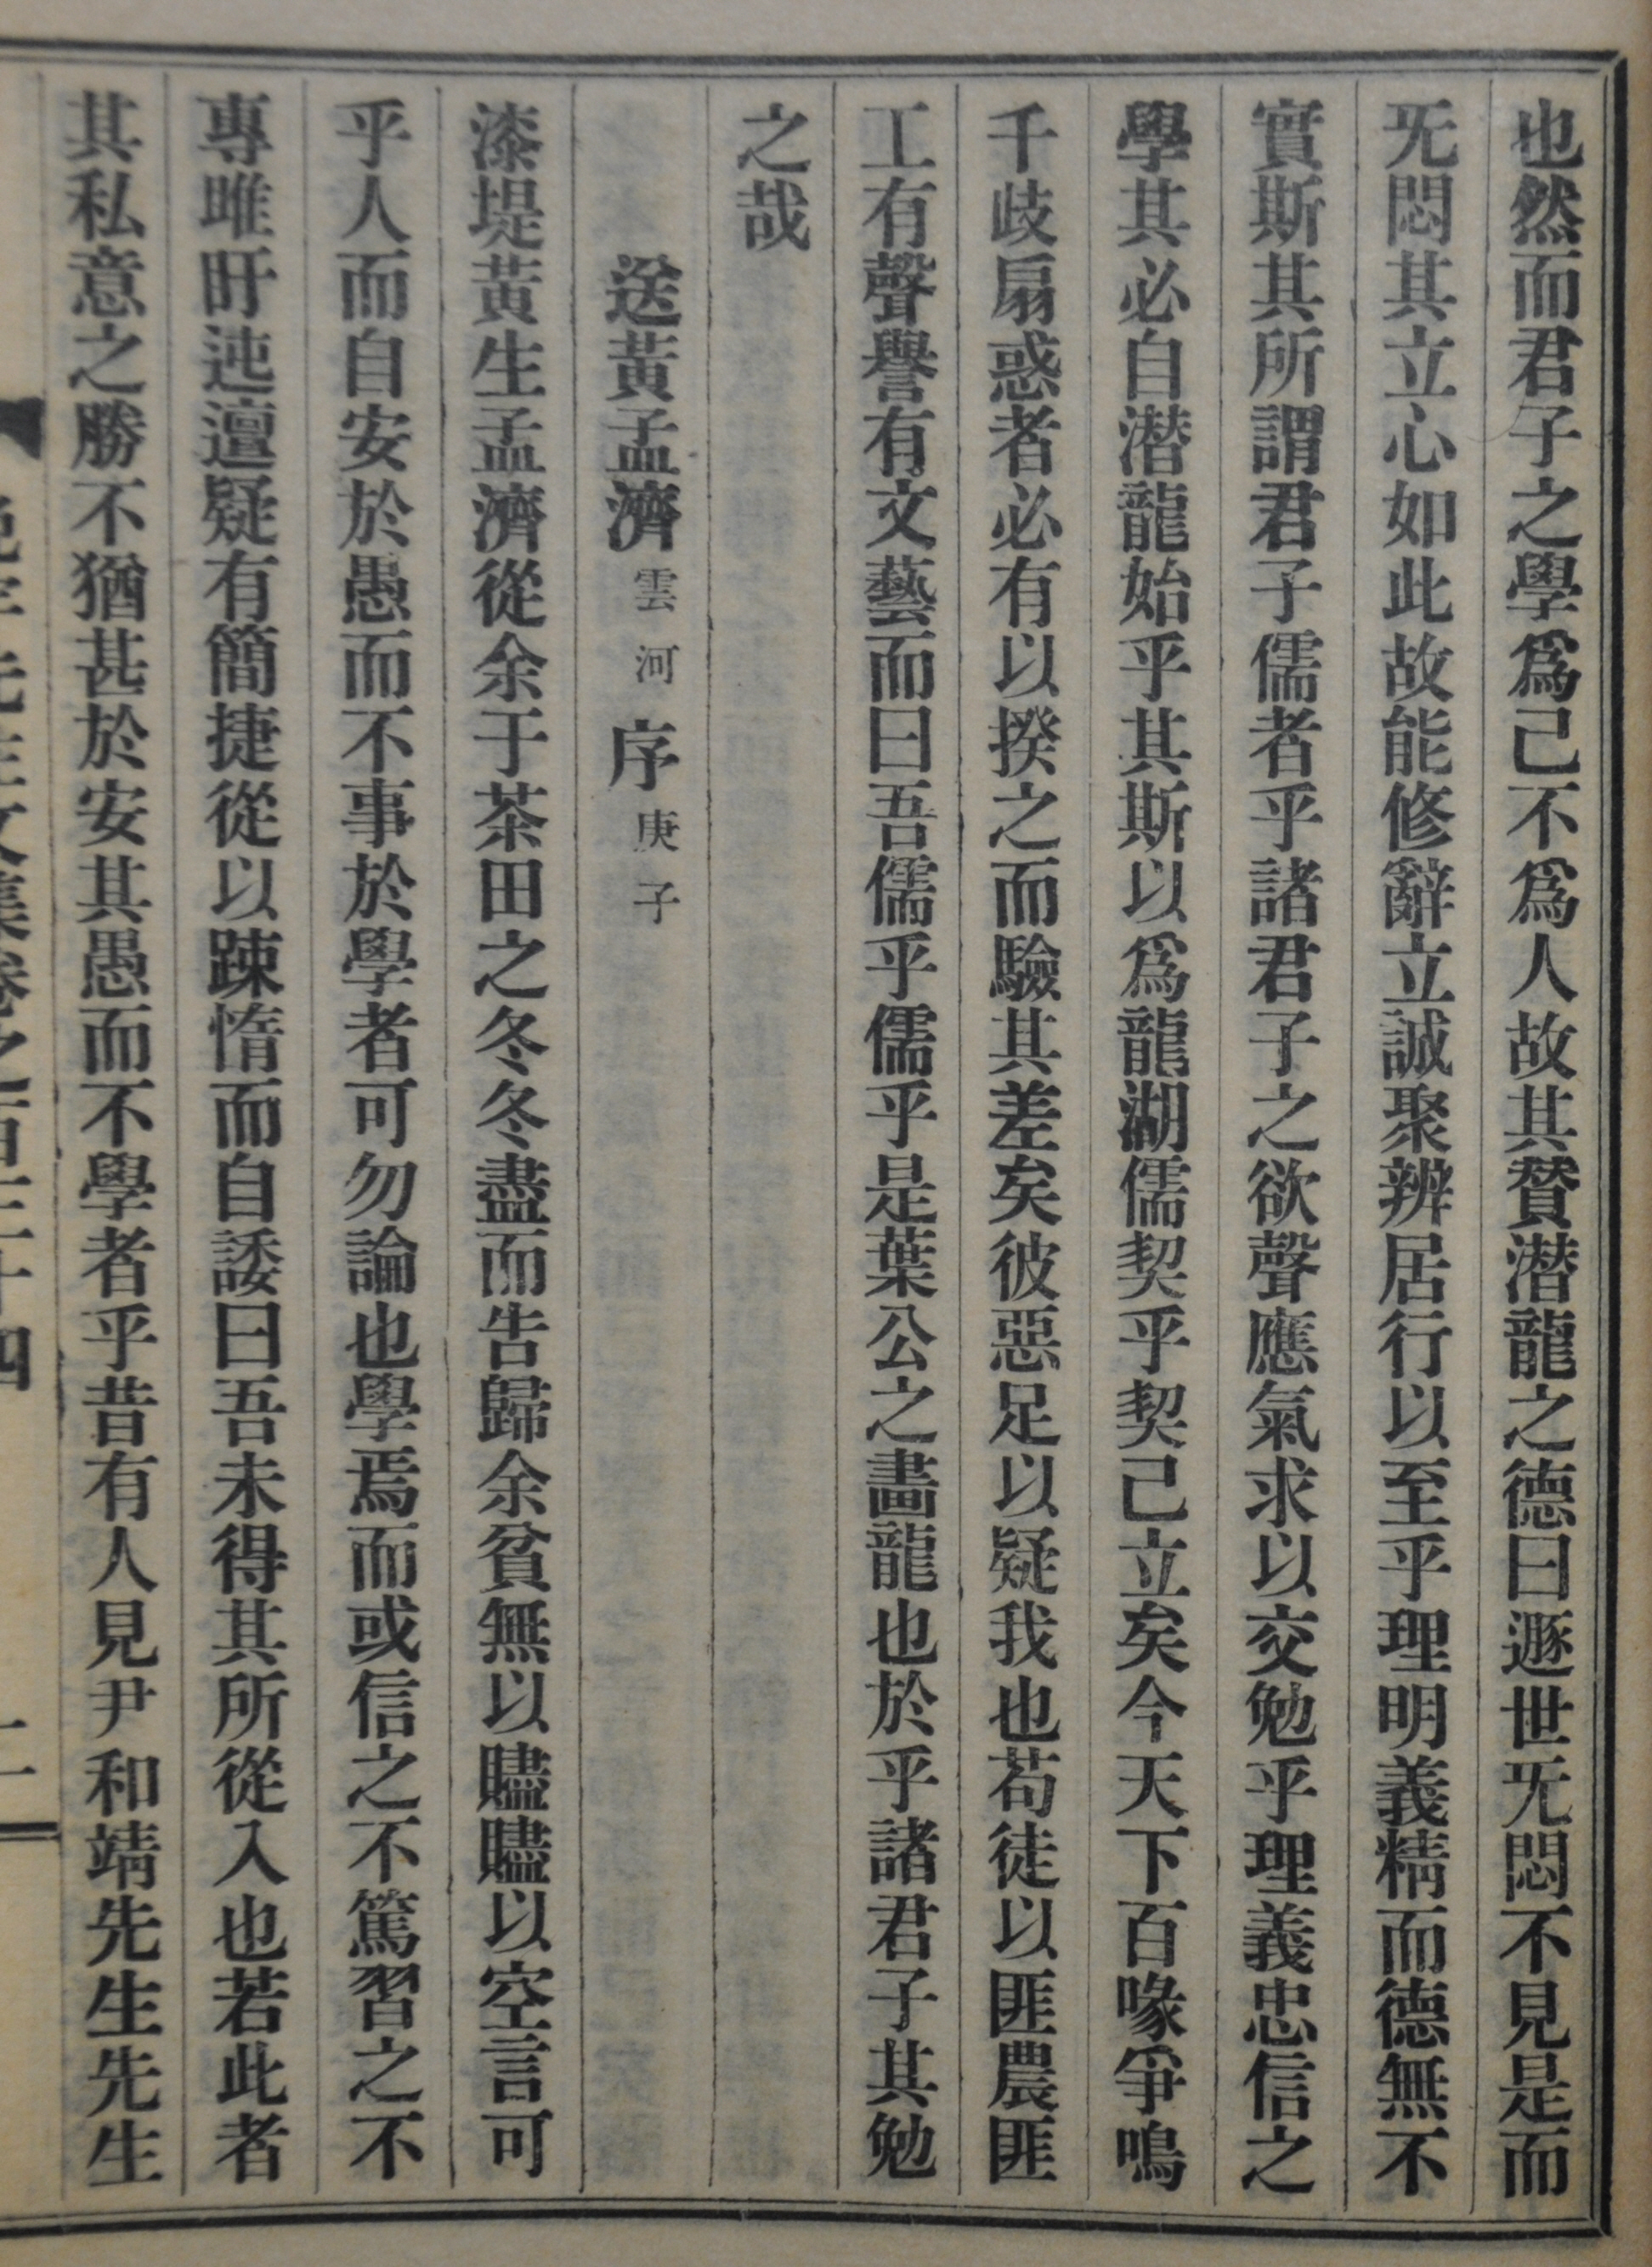 也然而君子之學爲己不爲人故其賛潛龍之德曰遯世旡悶不見是而
旡悶其立心如此故能修辭立誠聚辨居行以至乎理明義精而德無不
實斯其所謂君子儒者乎諸君子之欲聲應氣求以交勉乎理義忠信之
學其必自潛龍始乎其斯以爲龍湖儒契乎契己立矣今天下百喙爭鳴
千歧扇惑者必有以揆之而驗其差矣彼惡足以疑我也苟徒以匪農匪
工有聲譽有文藝而曰吾儒乎儒乎是葉公之畵龍也於乎諸君子其勉
之哉
送黃孟濟雲河序庚子
漆堤黃生孟濟從余于茶田之冬冬盡而告歸余貧無以贐贐以空言可
乎人而自安於愚而不事於學者可勿論也學焉而或信之不篤習之不
專睢盱迍邅疑有簡捷從以踈惰而自諉曰吾未得其所從入也若此者
其私意之勝不猶甚於安其愚而不學者乎昔有人見尹和靖先生先生
先生文集卷之百三十四